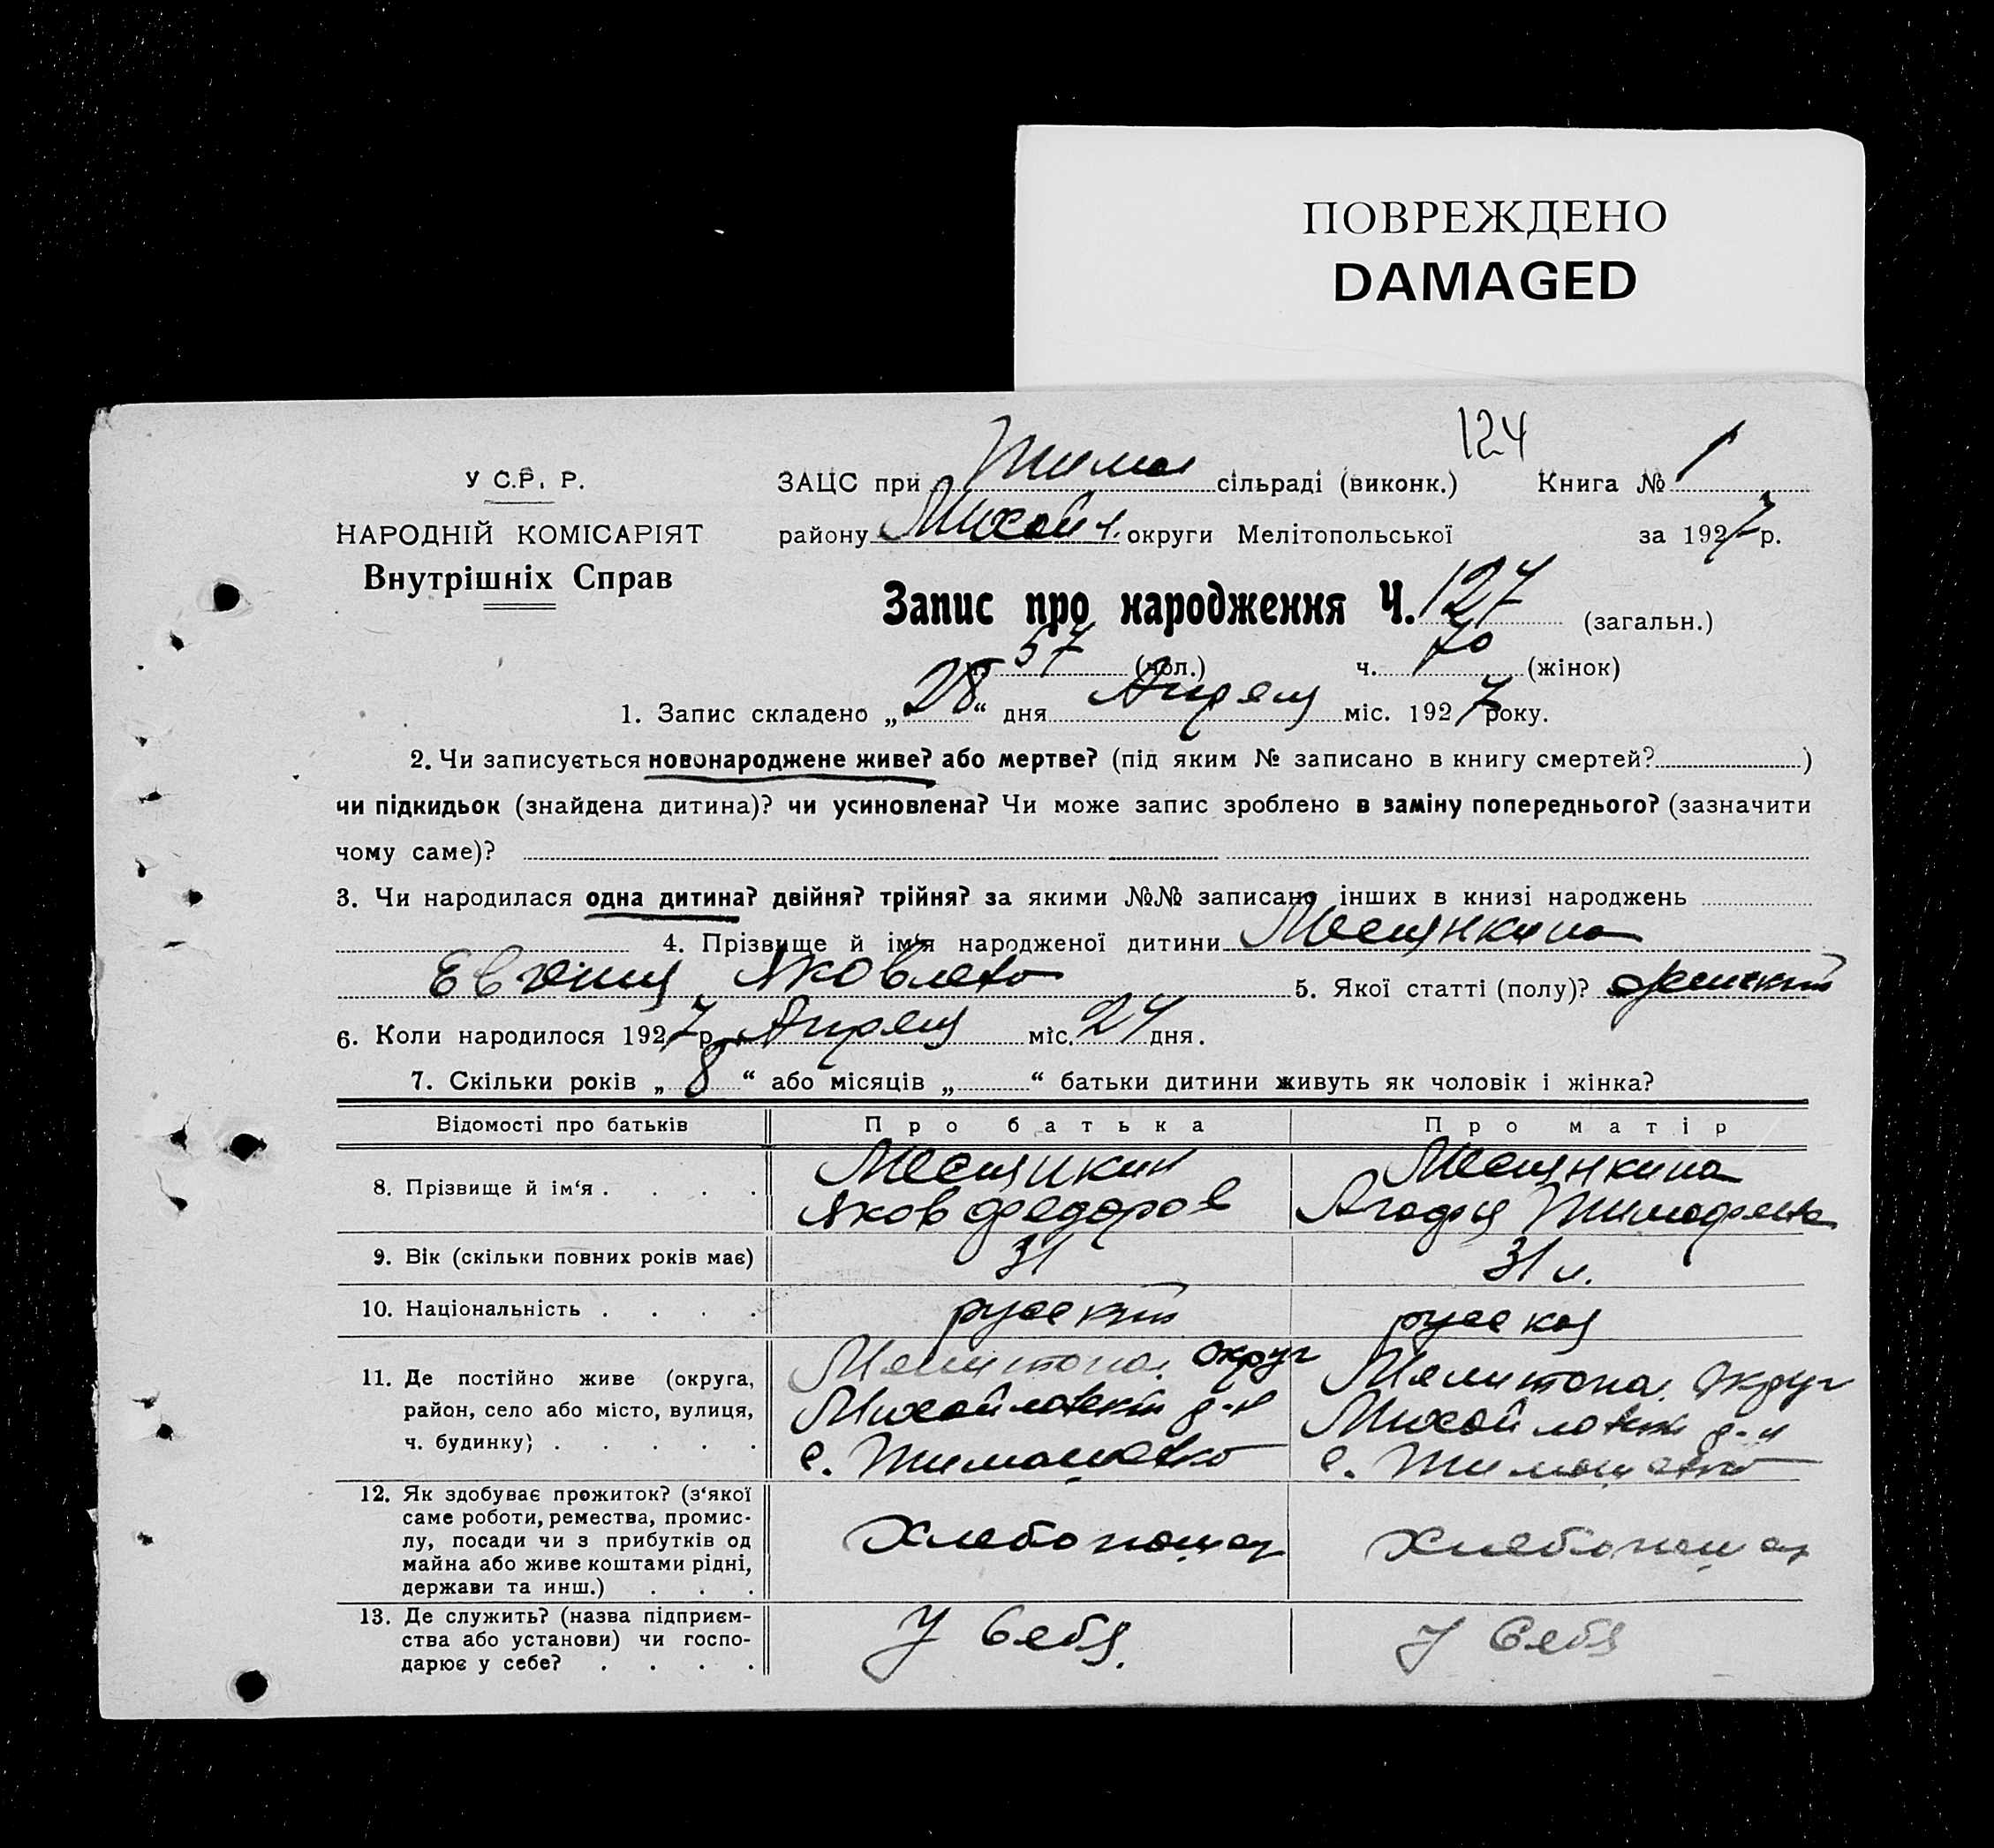 ПОВРЕЖДЕНО
DAMAGED
124
У С.Р. Р.
НАРОДНІЙ КОМІСАРІЯТ
Внутрішніх Справ
ЗАЦС при Тимош сільраді (виконк.) Книга № 1
району Михайл. округи Мелітопольської за 1927 р.
Запис про народження Ч. 127 (загальн.)
57 (чол.) ч. 70 (жінок)
1. Запис складено „28“ дня Апреля міс. 1927 року.
2. Чи записується новонароджене живе? або мертве? (під яким № записано в книгу смертей? )
чи підкидьок (знайдена дитина)? чи усиновлена? Чи може запис зроблено в заміну попереднього? (зазначити
чому саме)?
3. Чи народилася одна дитина? двійня? трійня? за якими №№ записано інших в книзі народжень
4. Прізвище й ім‘я народженої дитини Мещанкина
Евгения Яковлев 5. Якої статті (полу)? женский
6. Коли народилося 1927 р. Апреля міс. 24 дня.
7. Скільки років „8“ або місяців „ “ батьки дитини живуть як чоловік і жінка?
Відомості про батьків Про батька Про матір
8. Прізвище й ім‘я . . . . Яков Федоров Агафия Тимофеев
9. Вік (скільки повних років має) 31 31 л.
10. Національність . . . . руский руская
11. Де постійно живе (округа, район, село або місто, вулиця, ч. будинку) . . . . .
Мелитопол. Округ
Михайловский р-н
с. Тимошевка
Мелитопол. Округ
Михайловский р-н
с. Тимошевка
12. Як здобуває прожиток? (з‘якої саме роботи, ремества, промис-
лу, посади чи з прибутків од
майна або живе коштами рідні,
держави та инш.) . . .
Хлебопашец Хлебопашец
13. Де служить? (назва підприєм-
ства або установи) чи госпо-
дарює у себе? . . . .
У Себя. У Себя